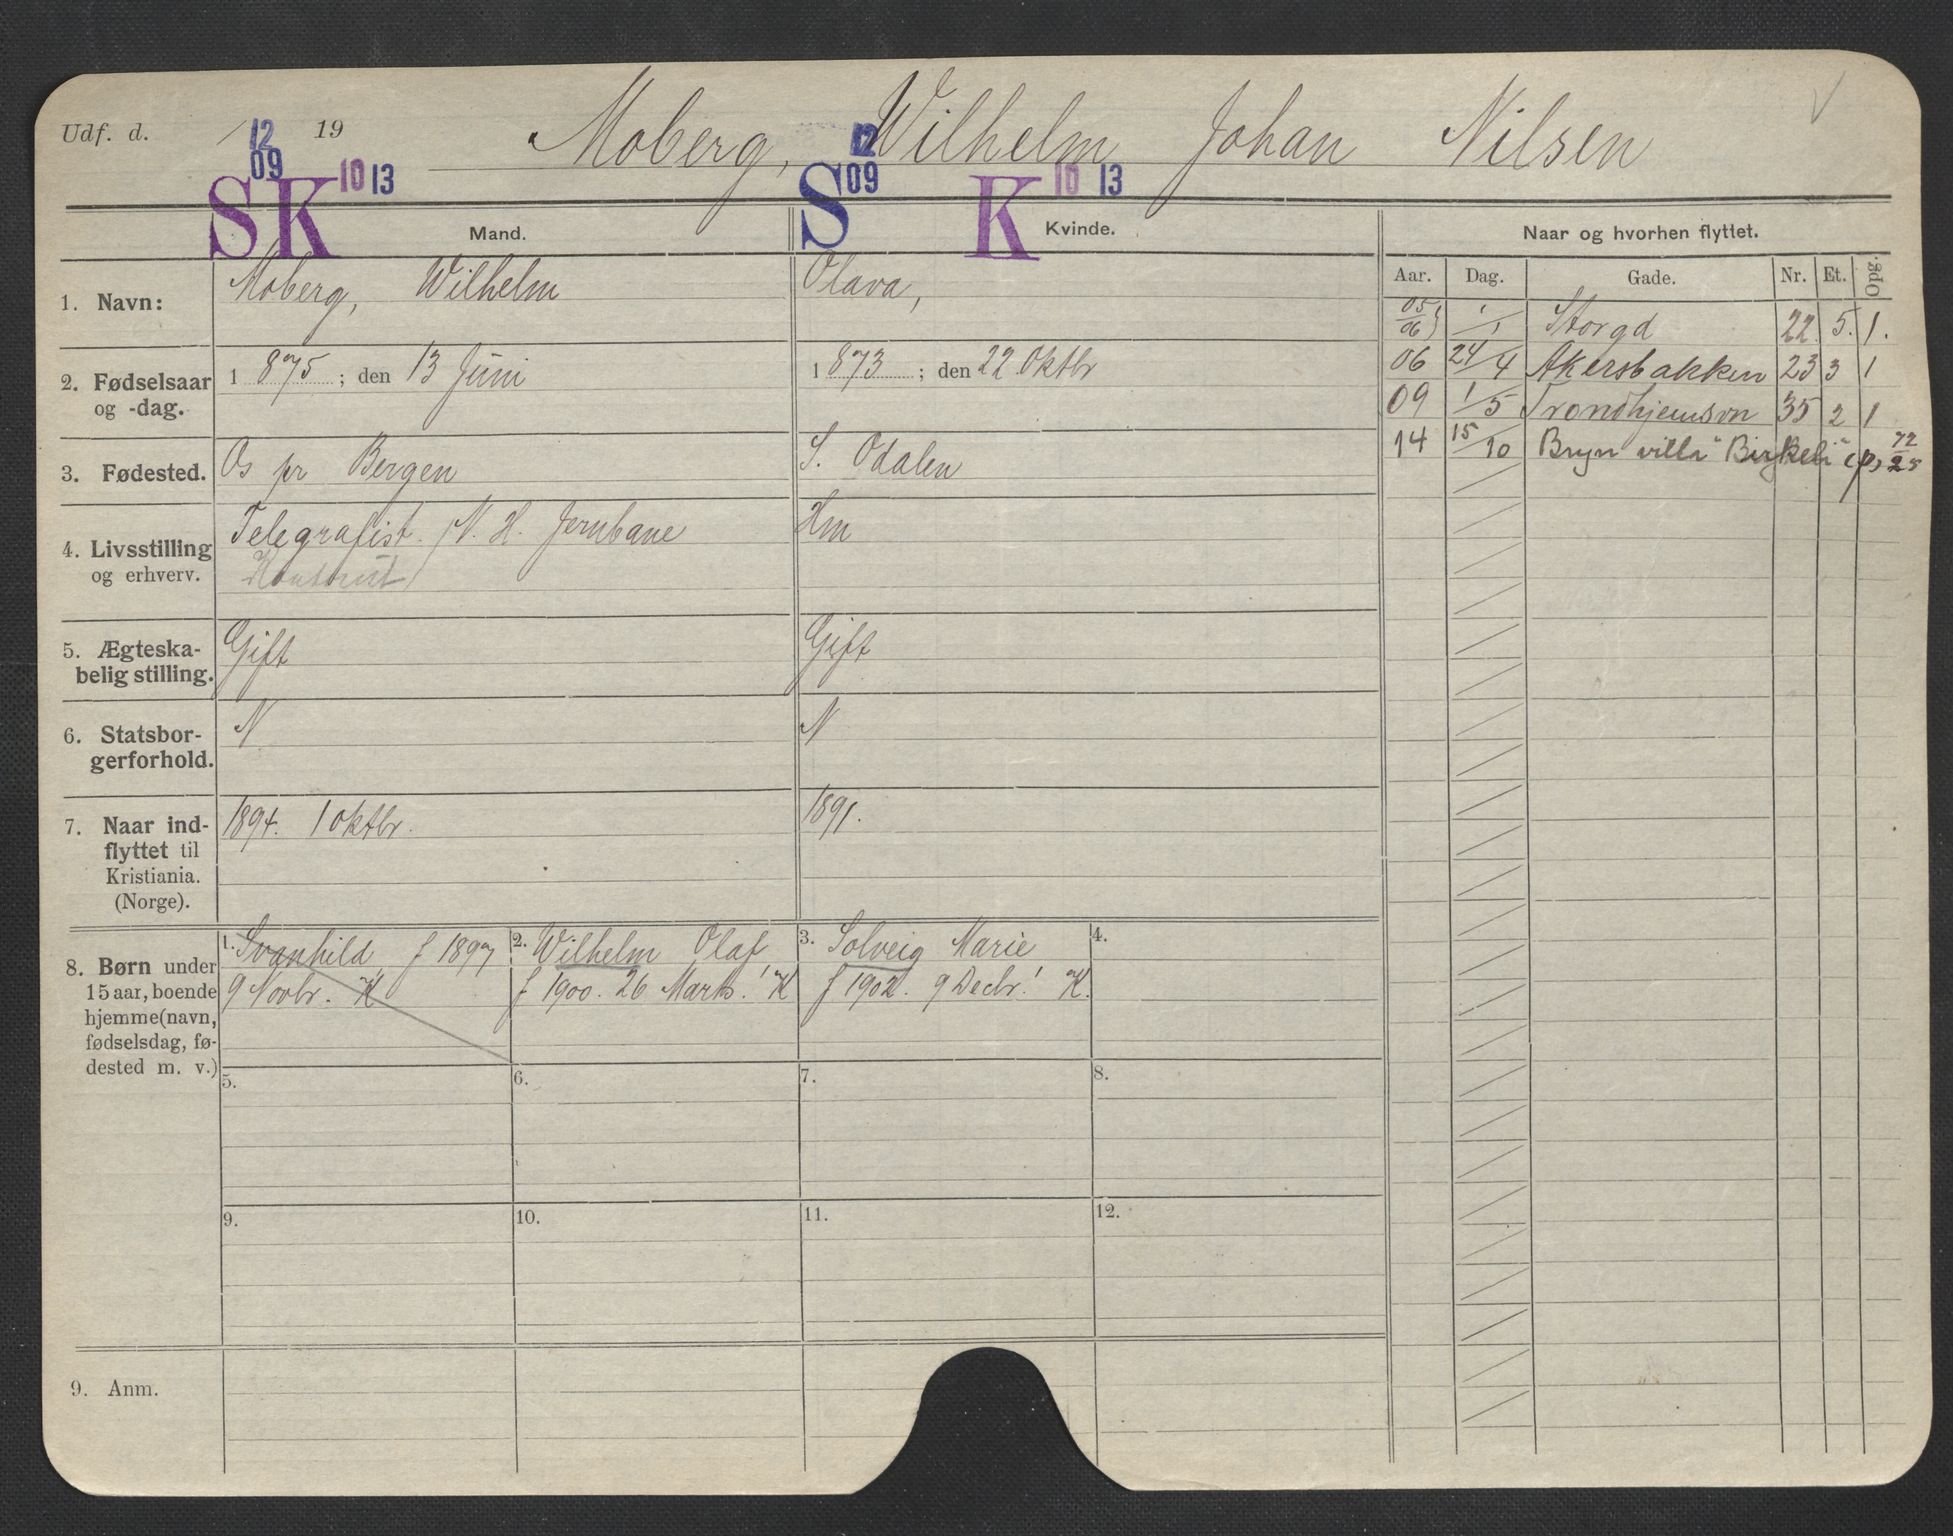 Udf. d. / 19
12 09
Moberg, Wilhelm Johan Nilsen
S K 10 13
12 09
S K 10 13
Mand.
Kvinde.
Naar og hvorhen flyttet.
Aar. Dag. Gade. Nr. Et. Opg.
1. Navn: Moberg, Wilhelm
Olava,
2. Fødselsaar og -dag. 1 875 ; den 13 Juni
1 873 ; den 22 Oktbr
3. Fødested. Os pr Bergen
S. Odalen
4. Livsstilling og erhverv. Telegrafist. N. H. Jernbane
Hm
5. Ægteska-
belig stilling. Gift
Gift
6. Statsbor-
gerforhold. N
N
7. Naar ind-
flyttet til
Kristiania.
(Norge).
1894. 1 Oktbr.
1891.
8. Børn under
15 aar, boende
hjemme (navn,
fødselsdag, fø-
dested m. v.)
1. Svanhild f 1897
9 Novbr. K
2. Wilhelm Olaf
f 1900. 26 Marts! K
3. Solveig Marie
f 1902. 9 Decbr! K.
4.
5.
6.
7.
8.
9.
10.
11.
12.
9. Anm.
05/06 1/1 Storgd 22 5. 1.
06 24/4 Akersbakken 23 3 1
09 1/5 Trondhjemsvn 35 2 1
14 15/10 Bryn villa "Birkeli" (p)